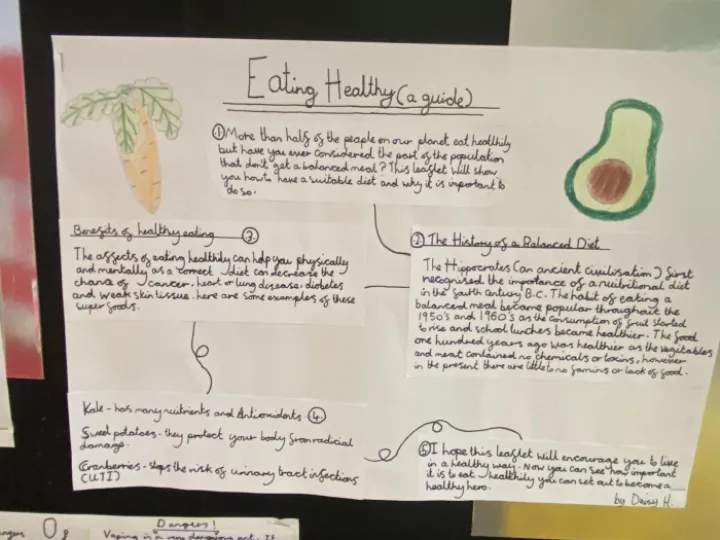 Eating Healthy (a guide)
① More than half of the people on our planet eat healthily
but have you ever considered the part of the population
that don't get a balanced meal? This leaflet will show
you how to have a suitable diet and why it is important to
do so.
② The History of a Balanced Diet
The Hippocrates (an ancient civilisation) first
recognised the importance of a nutritional diet
in the fourth century B.C. The habit of eating a
balanced meal became popular throughout the
1950's and 1960's as the consumption of fruit started
to rise and school lunches became healthier. The food
one hundred years ago was healthier as the vegetables
and meat contained no chemicals or toxins, however
in the present there are little to no famins or lack of food.
Benefits of healthy eating ③
The affects of eating healthily can help you physically
and mentally as a correct diet can decrease the
chance of cancer, heart or lung disease, diabetes
and weak skin tissue. here are some examples of these
super foods.
Kale - has many nutrients and Antioxidants. ④
Sweet potatoes - they protect your body from radical
damage.
Cranberries - stops the risk of urinary tract infections
(UTI)
⑤ I hope this leaflet will encourage you to live
in a healthy way. Now you can see how important
it is to eat healthily you can set out to become a
healthy hero.
by Daisy H.
Dangers!
Vaping is a very dangerous act. It